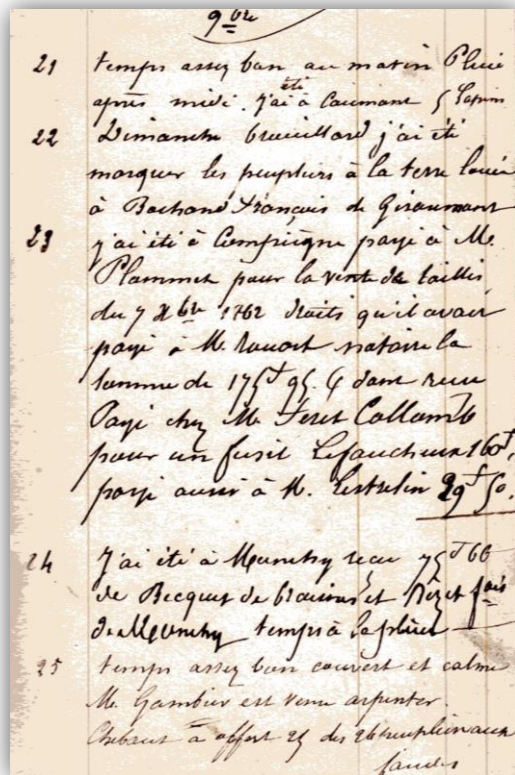 9bre
21 temps assez bon au matin Pluie
après midi. j'ai été à Caumont 5 lapins
22 Dimanche brouillard j'ai été
marquer les peupliers à la terre louée
à Bachand François de Giraumont
23 j'ai été à Compiègne payé à M.
Plammet pour la vente de taillis
du 7 Xbre 1762 droits qu'il avait
payé à M. notaire la
somme de 175f 95. dont reçu
Payé chez M. Feret Collomb
pour un fusil Lefaucheux 160f,
payé aussi à M. 29f 50.
24 J'ai été à Monchy reçu 75f 66
de Becquet de et fois
de Monchy temps à la pluie
25 temps assez bon couvert et calme
M. Gambier est venu arpenter.
à offert 25 des 26 peupliers aux